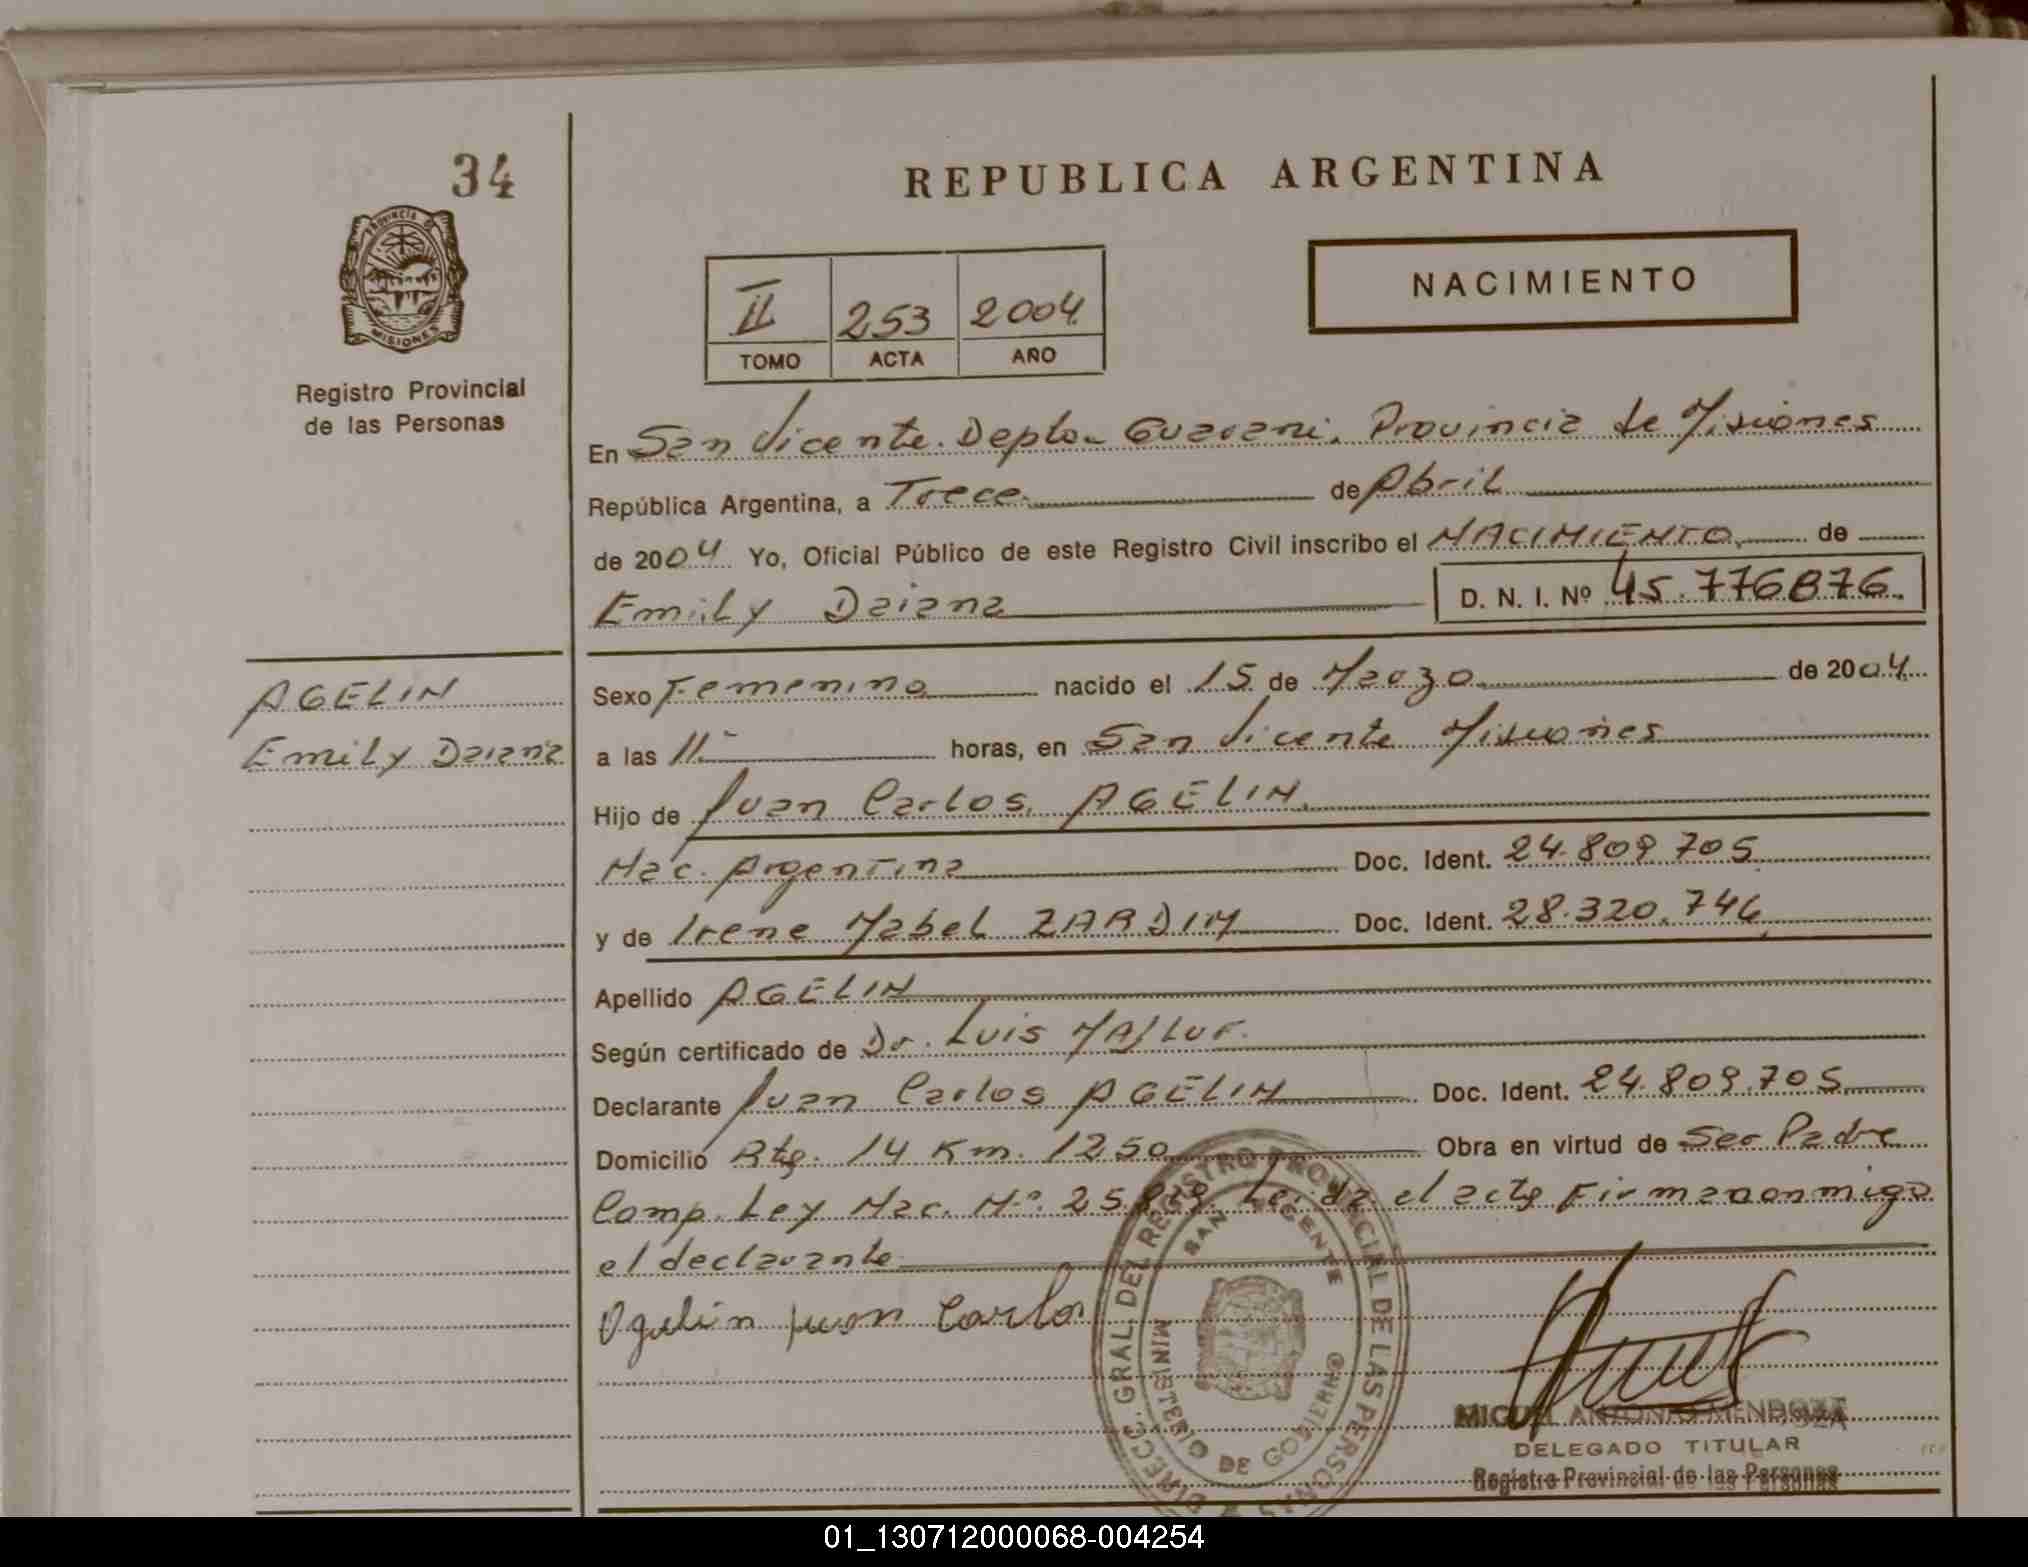 34
REPUBLICA ARGENTINA
PROVINCIA DE
MISIONES
Registro Provincial
de las Personas
II 253 2004
TOMO ACTA AÑO
NACIMIENTO
En San Vicente. Depto. Guarani. Provincia de Misiones
República Argentina, a Trece de Abril
de 2004 Yo, Oficial Público de este Registro Civil inscribo el NACIMIENTO de
Emily Daiana D. N. I. Nº 45.776876.
AGELIN
Emily Daiana
Sexo Femenino nacido el 15 de Marzo de 2004
a las 11 horas, en San Vicente Misiones
Hijo de Juan Carlos AGELIN
Nac. Argentina Doc. Ident. 24.809.705
y de Irene Mabel ZARDIN Doc. Ident. 28.320.746
Apellido AGELIN
Según certificado de Dr. Luis
Declarante Juan Carlos AGELIN Doc. Ident. 24.809.705
Domicilio Rta. 14 Km. 1250 Obra en virtud de Ser Padre
Comp. Ley Nac. Nº. Leida el acta
el declarante
Juan Carlos
DIRECC. GRAL. DEL REGISTRO PROVINCIAL DE LAS PERSONAS
SAN VICENTE
MINISTERIO DE GOBIERNO
MIGUEL ANTONIO MENDOZA
DELEGADO TITULAR
Registro Provincial de las Personas
01_130712000068-004254